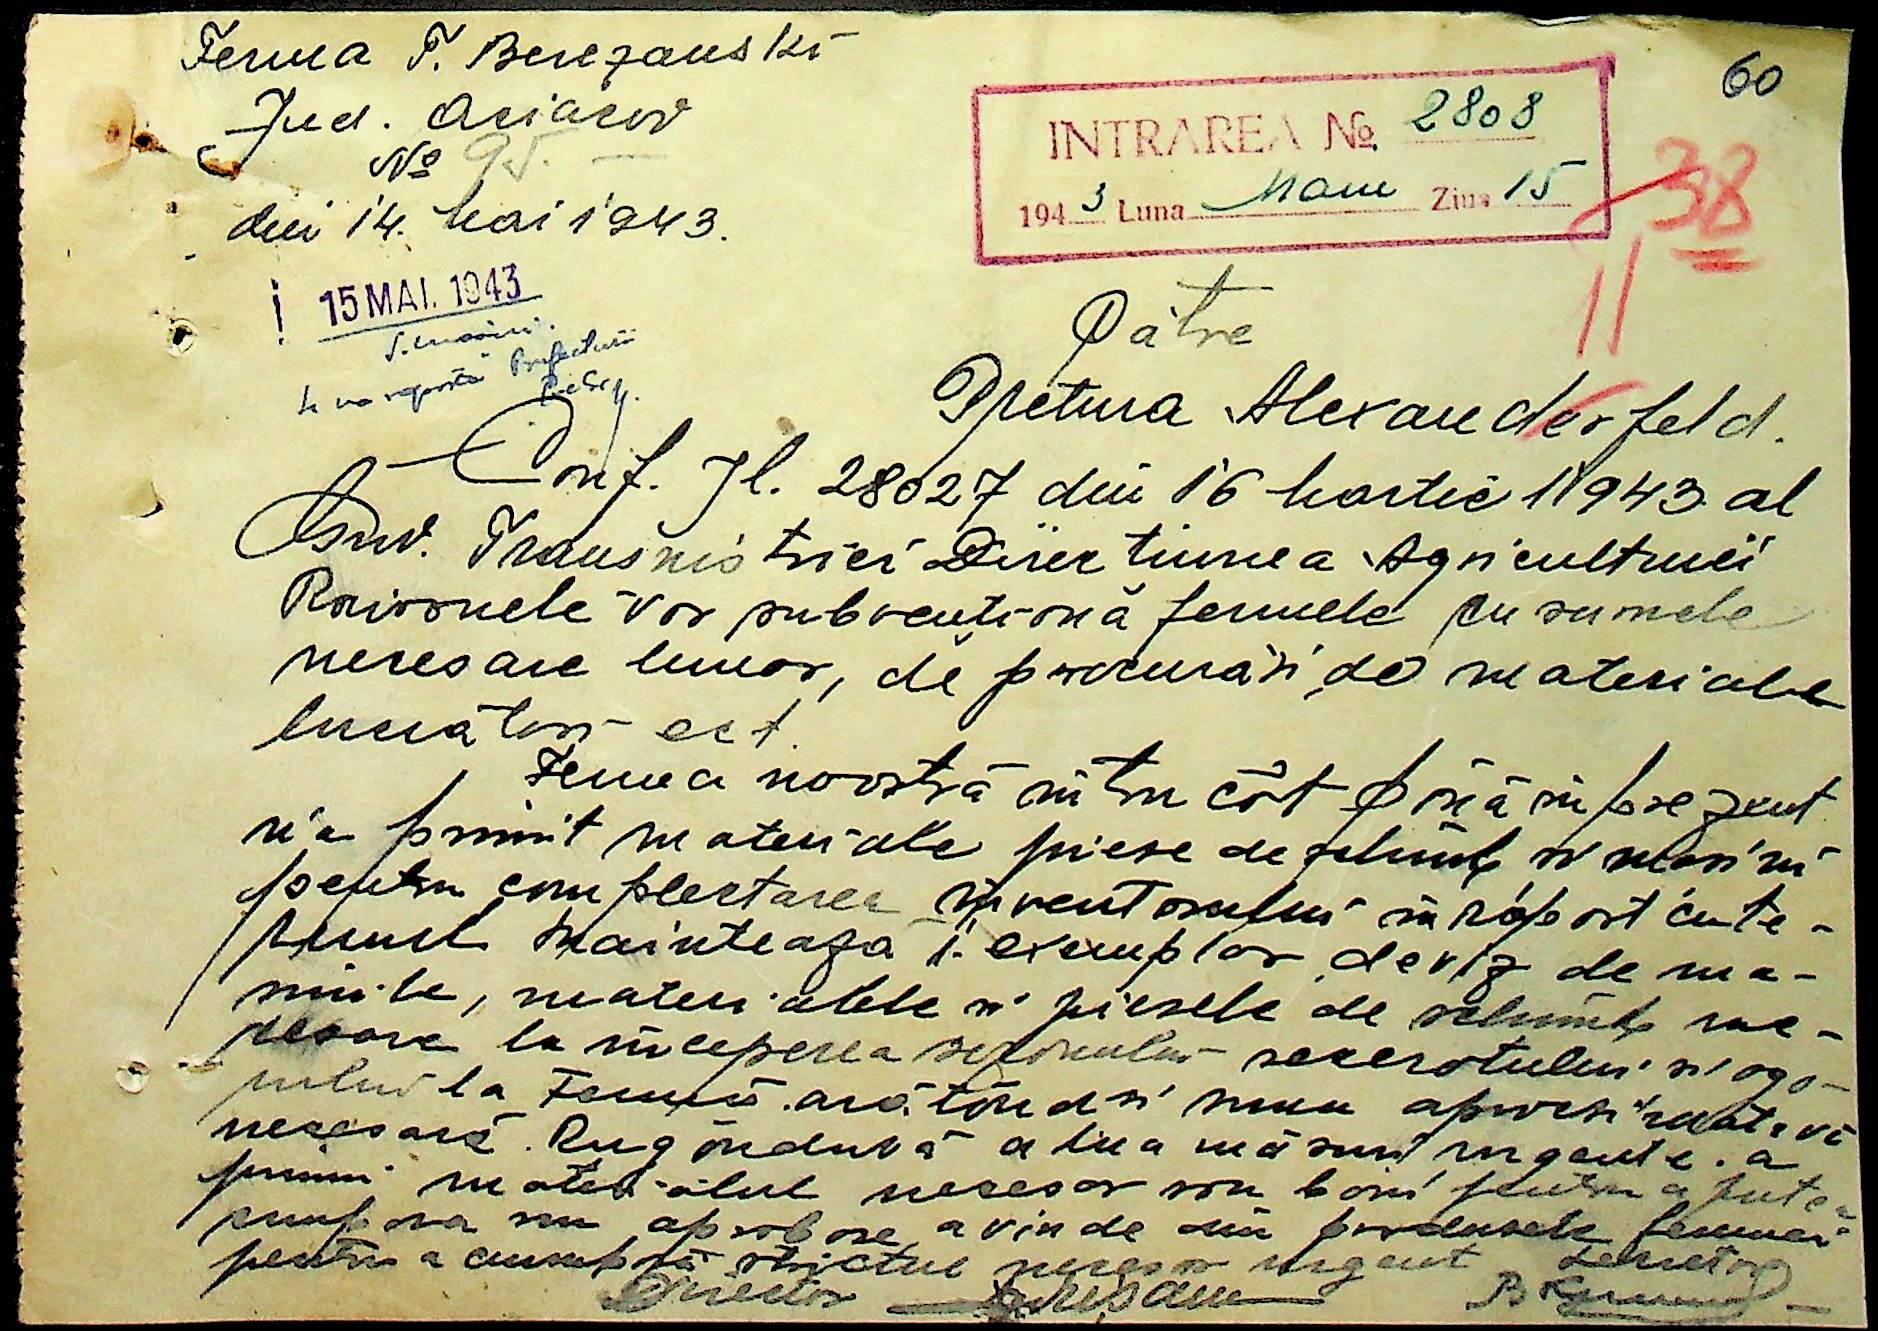 Ferma T. Berezanski
60
Jud. Aciacov
No 95.
din 14. Mai 1943.
INTRAREA No. 2808
1943 Luna Maiu Ziua 15
38
11
15 MAI. 1943
Se va raporta Prefecturii
Către
Pretura Alexanderfeld.
Conf. 28027 din 16 Martie 1943 al
Guv. Transnistriei Direcțiunea Agriculturii
Raioanele vor subvenționă fermele cu sumele
necesare lunar, de procurări de materiale
lucrători ect.
Ferma noastră întru cât până în prezent
n'a primit materiale piese de schimb și mașini
pentru complectarea inventorului în raport cu te-
renul înainteaza 1. exemplar deviz de ma-
șinile, materialele și piesele de schimb ne-
cesare la începerea sezonului seceratului și ogo-
rului la Fermă arătând și suma aproximativă
necesară. Rugânduvă a lua măsuri urgente a
primi materialul necesar sau bani pentru a pute-
cumpăra sau aprobare a vinde din produsele fermei
pentru a cumpără strictul necesar urgent
Secretar
Director